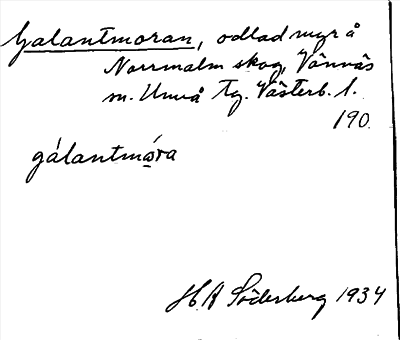 Galantmoran, odlad myr å
Norrmalm skog, Vännäs
sn. Umeå tg. Västerb. l.
190.
gálantmóra
H A Söderberg 1934